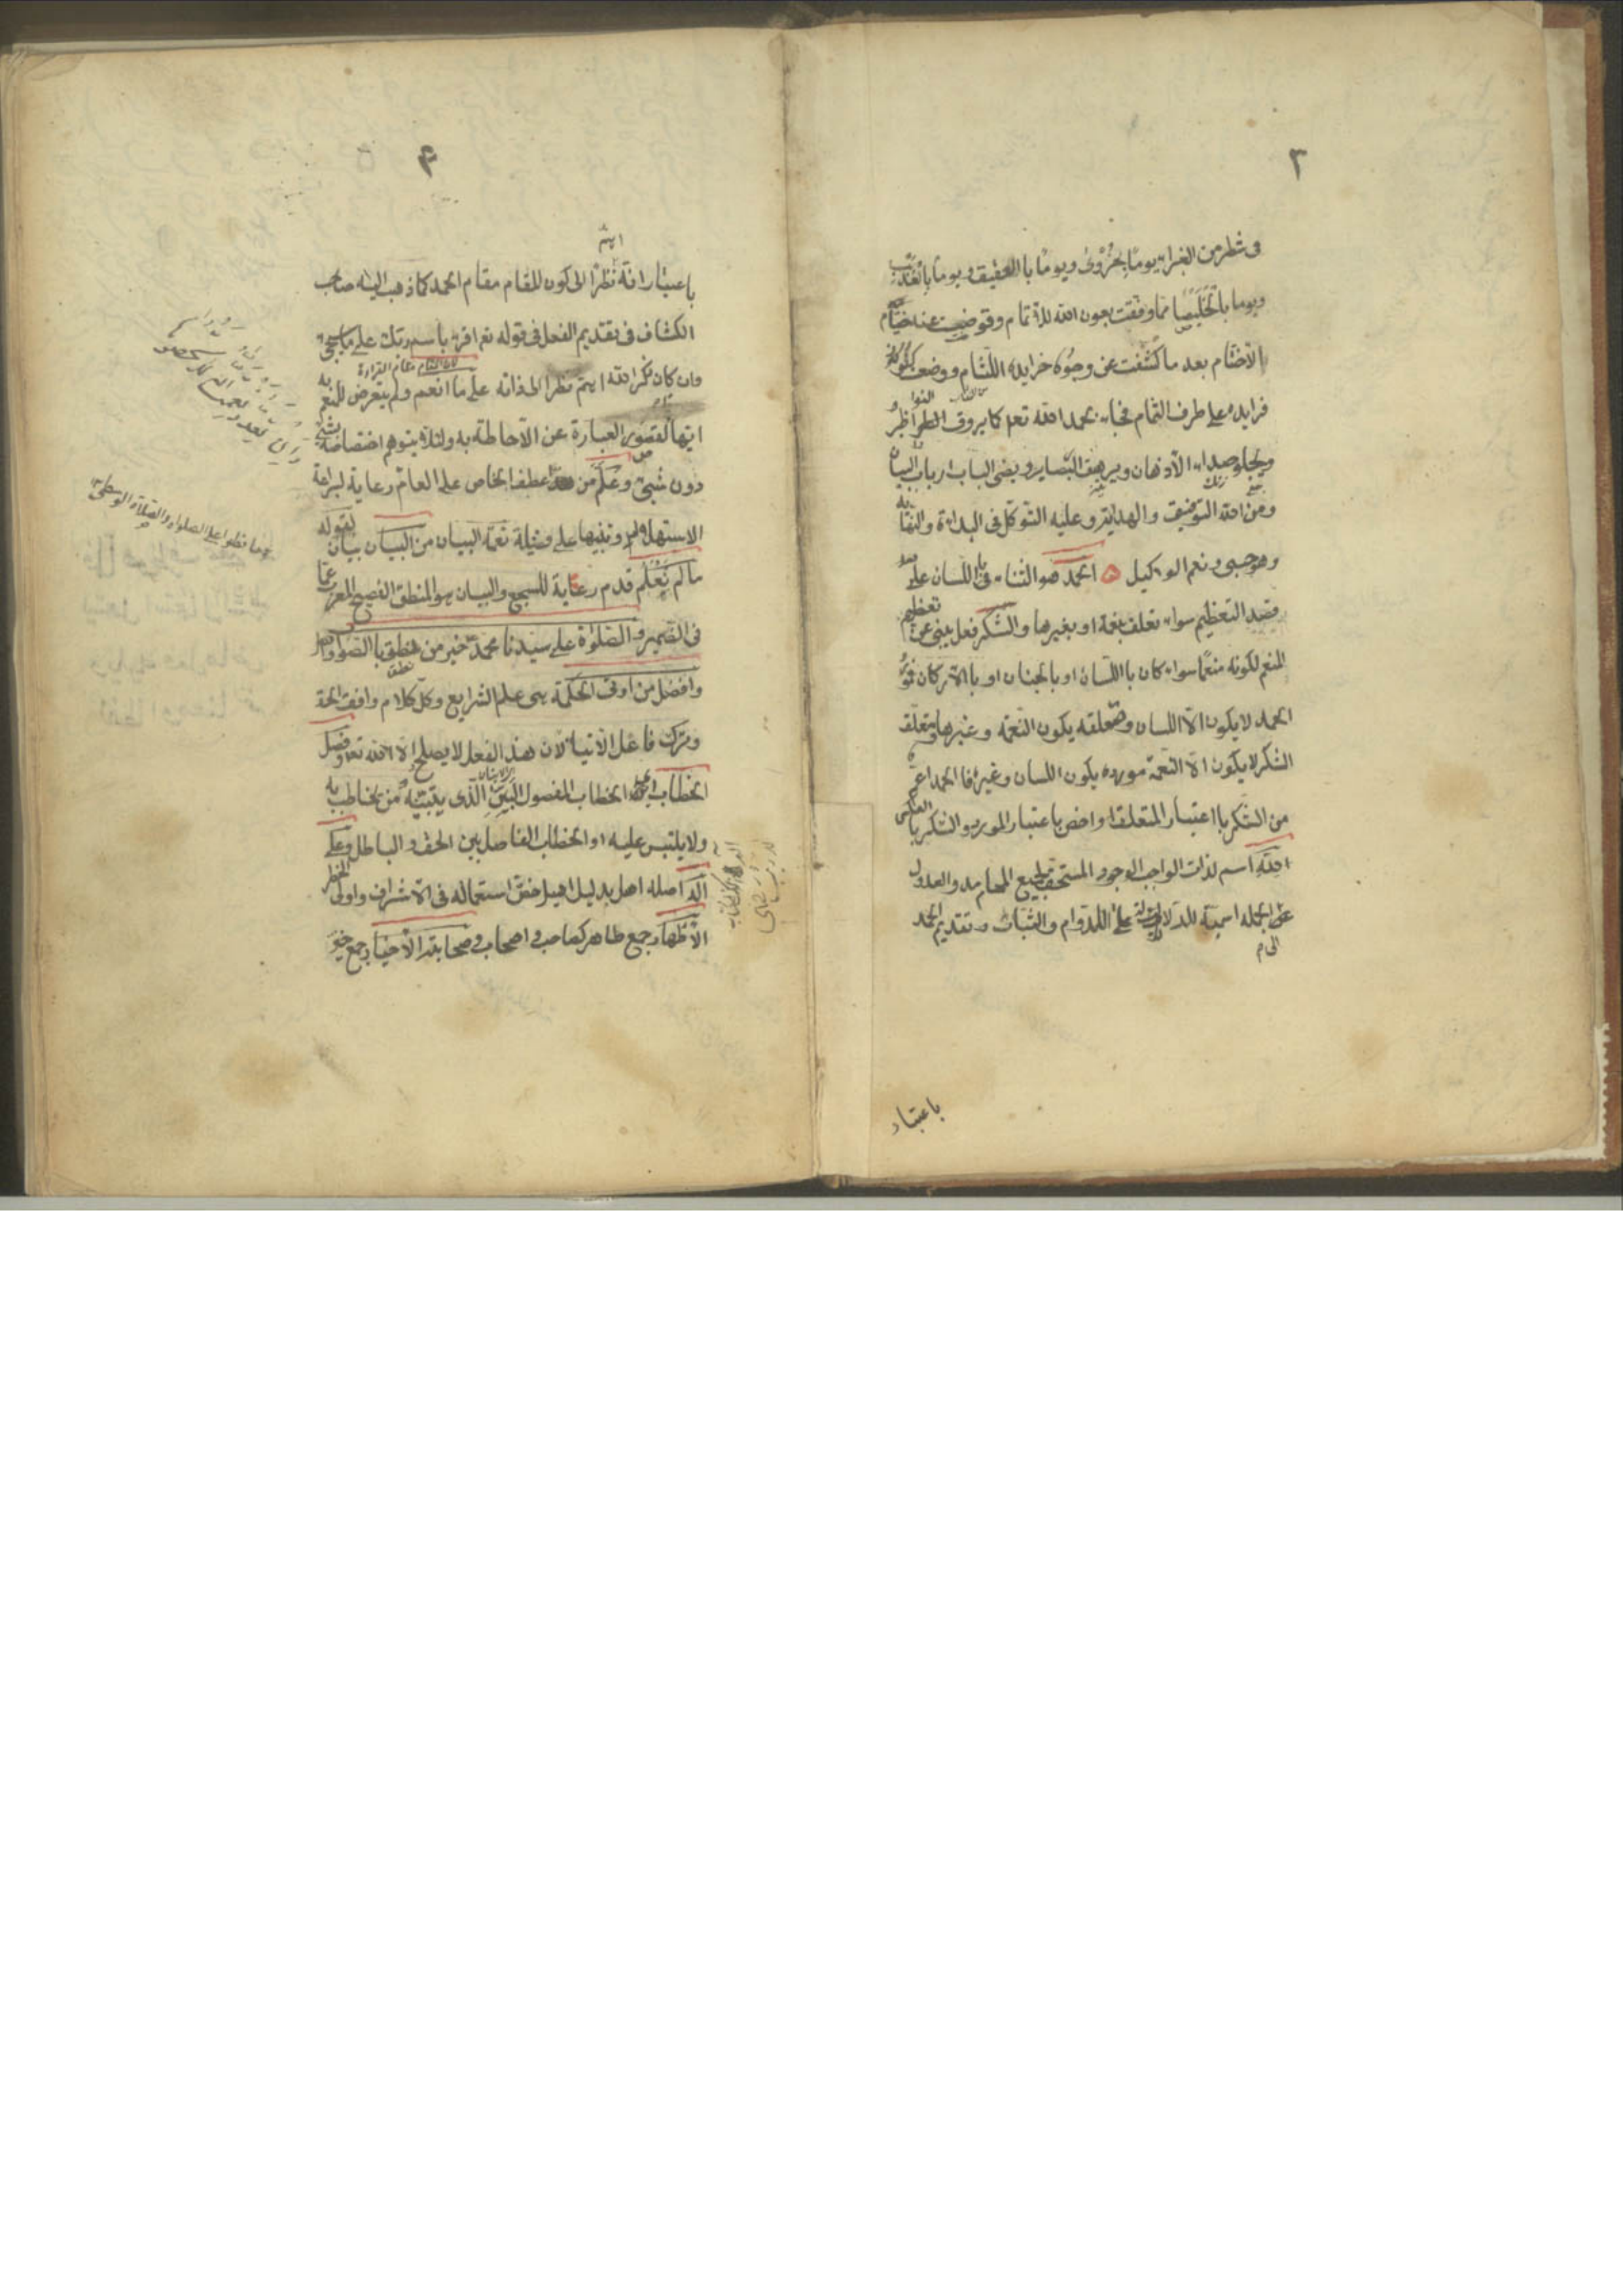 ٣
فى شطر من الغبراء يوما بحزوى ويوما باالعقيق ويوما بالعذيب
ويوما باالخليصا مما وفقت بعون الله للاتمام وقوضت عنه خيام
الاختتام بعد ما كشفت عن وجوه خرايده اللثام ووضعت كنوز
فرايده على طرف الثمام فجاء بحمد الله تعه كما يروق النواظر
ويجلو صداء الاذهان ويرهف البصاير ويضى الباب ارباب البيان
ومن الله التوفيق والهداية وعليه التوكل فى البداءة والنهايه
وهو حسبى ونعم الوكيل الحمد هو الثناء باللسان على
قصد التعظيم سواء تعلق بنعمة او بغيرها والشكر فعل ينبئ عن تعظيم
المنعم لكونه منعما سواء كان باللسان او بالجنان او باالاركان فمورد
الحمد لا يكون الا اللسان ومتعلقه يكون النعمة وغيرها ومتعلق
الشكر لا يكون الا النعمة ومورده يكون اللسان وغيره فاالحمد اعم
من الشكر باعتبار المتعلق واخص باعتبار المورد والشكر باالعكس
لله اسم لذات الواجب الوجود المستحق لجميع المحامد والعدول
الى الجملة اسمية للدلالة على الدوام والثبات وتقديم الحمد
باعتبار
٤
باعتبار انه اهم نظرا الى كون المقام مقام الحمد كما ذهب اليه صاحب
الكشاف فى تقديم الفعل فى قوله تعه اقرء باسم ربك على ما سيجئ
لان المقام مقام القراءة
وان كان ذكر الله اهم نظرا الى ذاته على ما انعم ولم يتعرض للمنعم به
ايهاما لقصور العبارة عن الاحاطة به ولئلا يتوهم اختصاصه بشئ
دون شئ وعلم من عطف الخاص على العام رعاية لبراعة
الاستهلال وتنبيها على فضيلة نعمة البيان من البيان بيان لقوله
ما لم نعلم قدم رعاية للسجع والبيان هو المنطق الفصيح المعرب عما
فى الضمير والصلوة على سيدنا محمد خير من نطق باالصواب
وافضل من اوتى الحكمة هى علم الشرايع وكل كلام وافق الحق
وترك فاعل الايتاء لان هذا الفعل لا يصلح الا لله تعه وفصل
الخطاب اى الخطاب المفصول البين الذى يتبينه من يخاطب به
ولا يلتبس عليه او الخطاب الفاصل بين الحق والباطل وعلى
اله اصله اهل بدليل اهيل خص استعماله فى الاشراف واولى الخطر
الاطهار جمع طاهر كصاحب واصحاب وصحابته الاخيار جمع خير
حافظوا على الصلوات والصلاة الوسطى